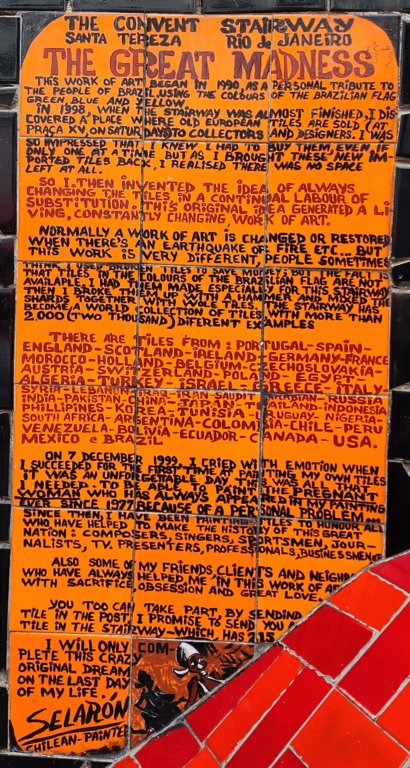 THE CONVENT STAIRWAY
SANTA TEREZA RIO de JANEIRO
THE GREAT MADNESS
THIS WORK OF ART BEGAN IN 1990, AS A PERSONAL TRIBUTE TO
THE PEOPLE OF BRAZIL USING THE COLOURS OF THE BRAZILIAN FLAG
GREEN BLUE AND YELLOW.
IN 1998, WHEN THE STAIRWAY WAS ALMOST FINISHED, I DIS
COVERED A PLACE WHERE OLD EUROPEAN TILES ARE SOLD (AT
PRAÇA XV, ON SATURDAYS) TO COLLECTORS AND DESIGNERS. I WAS
SO IMPRESSED THAT I KNEW I HAD TO BUY THEM, EVEN IF
ONLY ONE AT A TIME BUT AS I BROUGHT THESE NEW IM-
PORTED TILES BACK, I REALISED THERE WAS NO SPACE
LEFT AT ALL.
SO I THEN INVENTED THE IDEA OF ALWAYS
CHANGING THE TILES IN A CONTINUAL LABOUR OF
SUBSTITUTION. THIS ORIGINAL IDEA GENERATED A LI-
VING, CONSTANTLY CHANGING WORK OF ART.
NORMALLY A WORK OF ART IS CHANGED OR RESTORED
WHEN THERE'S AN EARTHQUAKE OF FIRE ETC... BUT
THIS WORK IS VERY DIFFERENT, PEOPLE SOMETIMES
THAT I USED BROKEN TILES TO SAVE MONEY; BUT THE FACT IS
THAT TILES IN THE COLOURS OF THE BRAZILIAN FLAG ARE NOT
AVAILABLE, I HAD THEM MADE ESPECIALLY FOR THIS STAIRWAY
THEN I BROKE THEM UP WITH A HAMMER AND MIXED THE
SHARDS TOGETHER WITH WHOLE TILES. THE STAIRWAY HAS
BECOME A WORLD COLLECTION OF TILES WITH MORE THAN
2,000 (TWO THOUSAND) DIFERENT EXAMPLES
THERE ARE TILES FROM: PORTUGAL-SPAIN-
ENGLAND-SCOTLAND-IRELAND-GERMANY-FRANCE
MOROCCO-HOLLAND BELGIUM-CZECHOSLOVAKIA-
AUSTRIA-SWITZERLAND POLAND EGYPT-
ALGERIA-TURKEY-ISRAEL-GREECE-ITALY-
SYRIA LEBANON IRAQ-IRAN SAUDIT ARABIAN-RUSSIA
INDIA-PAKISTAN-CHINA-JAPAN THAILAND-INDONESIA
PHILLIPINES-KOREA-TUNISIA-URUGUAY-NIGERIA-
SOUTH AFRICA-ARGENTINA-COLOMBIA-CHILE-PERU
VENEZUELA-BOLIVIA-ECUADOR-CANADA-USA.
MEXICO e BRAZIL
ON 7 DECEMBER 1999 I CRIED WITH EMOTION WHEN
I SUCCEEDED FOR THE FIRST TIME IN PAINTING MY OWN TILES
IT WAS AN UNFORGETTABLE DAY, THIS WAS ALL THAT
I NEEDED. I HAVE ALWAYS PAINTED THE PREGNANT
WOMAN WHO HAS ALWAYS APPEARED IN MY PAINTING
EVER SINCE 1977, BECAUSE OF A PERSONAL PROBLEM IN
SINCE THEN, I'VE BEEN PAINTING TILES TO HONOUR
WHO HAVE HELPED TO MAKE THE HISTORY OF THIS GREAT
NATION: COMPOSERS, SINGERS, SPORTSMEN, JOUR-
NALISTS, T.V. PRESENTERS, PROFESSIONALS, BUSINESSMEN OF
ALSO SOME OF MY FRIENDS CLIENTS AND NEIGHB
WHO HAVE ALWAYS HELPED ME IN THIS WORK OF ART
WITH SACRIFICE OBSESSION AND GREAT LOVE.
YOU TOO CAN TAKE PART, BY SENDING
TILE IN THE POST, I PROMISE TO SEND YOU A
TILE IN THE STAIRWAY-WHICH, HAS 215
I WILL ONLY COM-
PLETE THIS CRAZY
ORIGINAL DREAM
ON THE LAST DAY
OF MY LIFE.
SELARÓN
CHILEAN-PAINTER